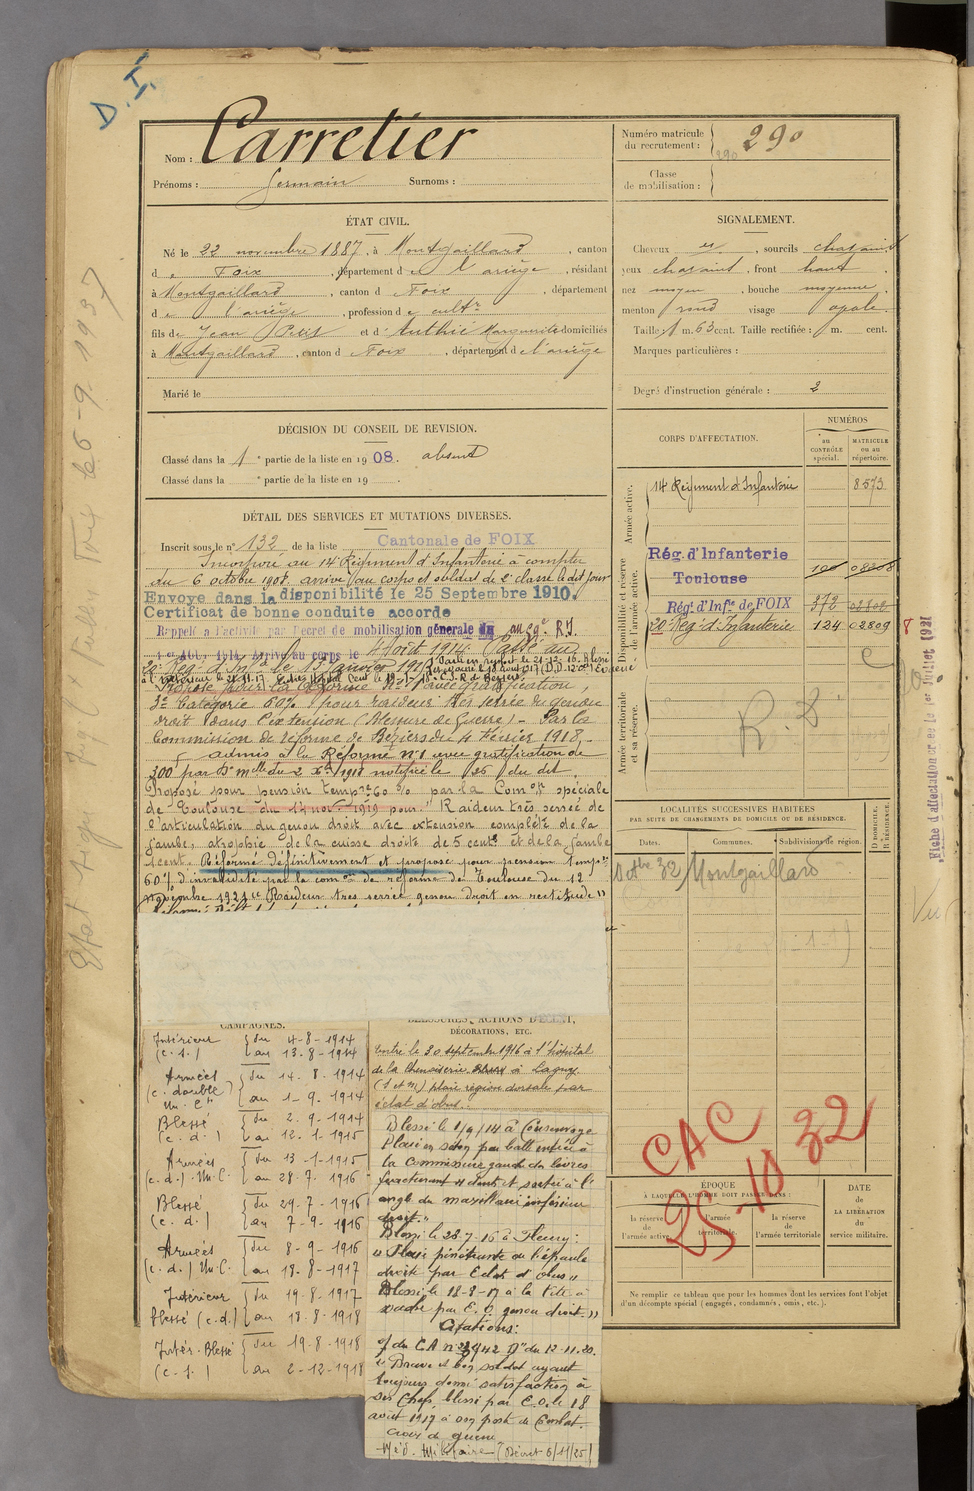 D. I.
Nom : Carretier
Prénoms : Germain Surnoms :
Numéro matricule du recrutement : 290
290
Classe de mobilisation :
ÉTAT CIVIL.
Né le 22 novembre 1887, à Montgaillard, canton
d e Foix, département d e l'ariège, résidant
à Montgaillard, canton d Foix, département
d e l'ariège, profession d e cultr
fils de Jean Petit et d' Authié Marguerite domiciliés
à Montgaillard, canton d Foix, département d e l'ariège
Marié le
SIGNALEMENT.
Cheveux et, sourcils chatains
yeux chatains, front haut
nez moyen, bouche moyenne,
menton rond visage ovale.
Taille : 1 m. 63 cent. Taille rectifiée : m. cent.
Marques particulières :
Degré d'instruction générale : 2
DÉCISION DU CONSEIL DE REVISION.
Classé dans la 1e partie de la liste en 1908. absent
Classé dans la e partie de la liste en 19 .
DÉTAIL DES SERVICES ET MUTATIONS DIVERSES.
Inscrit sous le n° 132 de la liste Cantonale de FOIX
Incorporé au 14e Régiment d'Infanterie à compter
du 6 octobre 1908. arrivé au corps et soldat de 2e classe le dit jour
Envoyé dans la disponibilité le 25 Septembre 1910.
Certificat de bonne conduite accordé
Rappelé à l'activité par Décret de mobilisation générale du
Arrivé au corps le 4 Août 1914. Passé au
20e Rég. d'Infie le 13 janvier 191
Proposé pour la Réforme N°1 avec gratification,
3e Catégorie 60% pour raideur très serrée du genou
droit dans l'extension (Blessure de Guerre) - Par la
Commission de réforme de Béziers du 4 Février 1918.
admis à la Réforme n°1 avec gratification de
300 par Don melle du 2 Xbre 1918 notifiée le 25 du dit.
Proposé pour pension tempre 60 % par la Comon spéciale
de Toulouse du 14 nov. 1919 pour "Raideur très serrée de
l'articulation du genou droit avec extension complète de la
jambe, atrophie de la cuisse droite de 5 cents et de la jambe
1 cent. Réformé définitivement et proposé pour pension tempre
60% d'invalidité par la comon de réforme de Toulouse du 12
novembre 1921 "Raideur très serrée genou droit en rectitude"
CORPS D'AFFECTATION.
NUMÉROS
au CONTRÔLE spécial.
MATRICULE ou au répertoire.
Armée active.
14e Régiment d'Infanterie 8573
Disponibilité et réserve de l'armée active.
Rég. d'Infanterie
Toulouse 08208
Régt d'Infie de FOIX 372 02802
20e Rég. d'Infanterie 124 02809
Armée territoriale et sa réserve.
R. D.
LOCALITÉS SUCCESSIVES HABITÉES
PAR SUITE DE CHANGEMENTS DE DOMICILE OU DE RÉSIDENCE.
Dates. Communes. Subdivisions de région. D DOMICILE. R RÉSIDENCE.
Octbre 32 Montgaillard
CAC
25.10 32
ÉPOQUE
À LAQUELLE L'HOMME DOIT PASSER DANS :
la réserve de l'armée active.
l'armée territoriale.
la réserve de l'armée territoriale
DATE DE LA LIBÉRATION du service militaire.
Ne remplir ce tableau que pour les hommes dont les services font l'objet
d'un décompte spécial (engagés, condamnés, omis, etc.).
CAMPAGNES.
Intérieur { du 4-8-1914
(c. s.) { au 13-8-1914
Armées { du 14-8-1914
(c. double) { au 1-9-1914
Blessé { du 2-9-1914
(c. d.) { au 12-1-1915
Armées { du 13-1-1915
(c. d.) { au 28-7-1916
Blessé { du 29-7-1916
(c. d.) { au 7-9-1916
Armées { du 8-9-1916
(c. d.) { au 18-8-1917
Intérieur { du 19-8-1917
blessé (c. d.) { au 18-8-1918
Intér. Blessé { du 19-8-1918
(c. s.) { au 2-12-1918
BLESSURES, ACTIONS D'ÉCLAT,
DÉCORATIONS, ETC.
Entré le 30 septembre 1916 à l'hôpital
de la à Lagny
(S et M) plaie région dorsale par
éclat d'obus.
Blessé le 1/9/14 à
Plaie en séton par balle entrée à
la commissure gauche des lèvres
fracturant 11 dents et sortie à l'
angle du maxillaire inférieur
droit."
Blessé le 28-7-16 à Fleury :
"Plaie pénétrante de l'épaule
droite par Eclat d'obus"
Blessé le 18-8-17 à la
par E. O. genou droit."
Citations :
du C.A. du 12-11-20.
"Brave et bon soldat ayant
toujours donné satisfaction à
ses Chefs, blessé par E.O. le 18
août 1917 à son poste de Combat.
Croix de guerre
Méd. Militaire (Décret 6/11/25)
Fiche d'affectation créée le 1er Juillet 1921
Vu